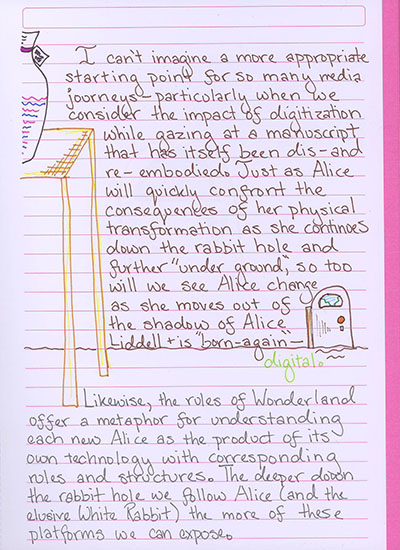 I can't imagine a more appropriate
starting point for so many media
journeys—particularly when we
consider the impact of digitization
while gazing at a manuscript
that has itself been dis- and
re-embodied. Just as Alice
will quickly confront the
consequences of her physical
transformation as she continues
down the rabbit hole and
further "under ground", so too
will we see Alice change
as she moves out of
the shadow of Alice
Liddell + is "born-again"—
digital.
Likewise, the rules of Wonderland
offer a metaphor for understanding
each new Alice as the product of its
own technology with corresponding
roles and structures. The deeper down
the rabbit hole we follow Alice (and the
elusive White Rabbit) the more of these
platforms we can expose.